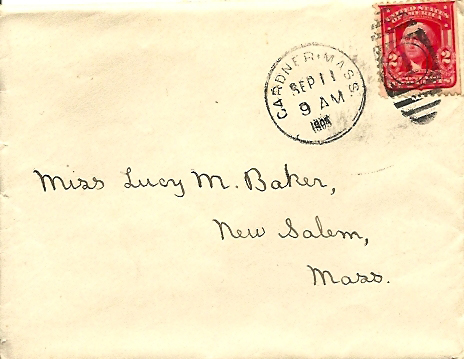 UNITED STATES
OF AMERICA
2 2
GARDNER, MASS.
SEP 11
9 AM
Miss Lucy M. Baker,
New Salem,
Mass.